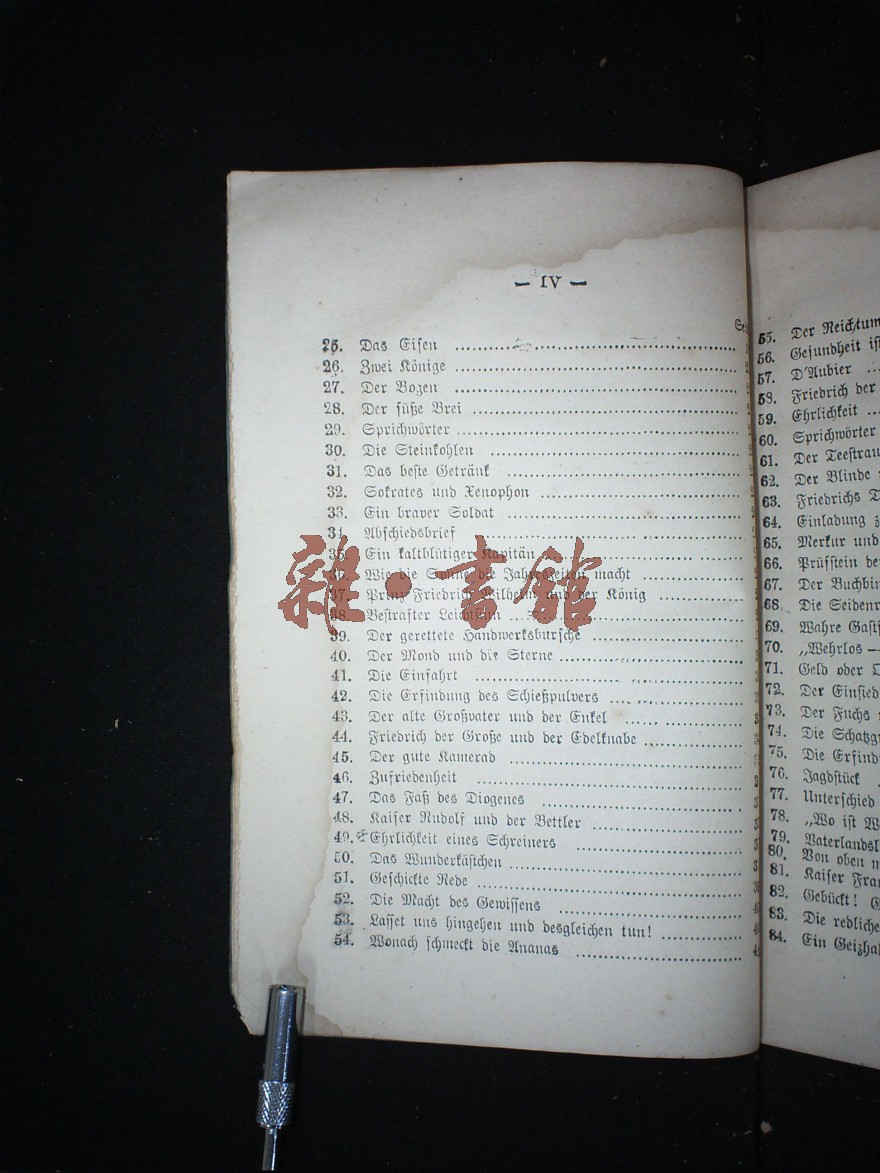 — IV —
25. Das Eisen
26. Zwei Könige
27. Der Bogen
28. Der süße Brei
29. Sprichwörter
30. Die Steinkohlen
31. Das beste Getränk
32. Sokrates und Xenophon
33. Ein braver Soldat
34. Abschiedsbrief
35. Ein kaltblütiger Kapitän
36. Wie die Sonne die Jahreszeiten macht
37. Prinz Friedrich Wilhelm und der König
38. Bestrafter Leichtsinn
39. Der gerettete Handwerksbursche
40. Der Mond und die Sterne
41. Die Einfahrt
42. Die Erfindung des Schießpulvers
43. Der alte Großvater und der Enkel
44. Friedrich der Große und der Edelknabe
45. Der gute Kamerad
46. Zufriedenheit
47. Das Faß des Diogenes
48. Kaiser Rudolf und der Bettler
49. Ehrlichkeit eines Schreiners
50. Das Wunderkästchen
51. Geschickte Rede
52. Die Macht des Gewissens
53. Lasset uns hingehen und desgleichen tun!
54. Wonach schmeckt die Ananas
55. Der Reichtum
56. Gesundheit
57. D'Aubier
58. Friedrich der
59. Ehrlichkeit
60. Sprichwörter
61. Der
62. Der Blinde
63. Friedrichs
64. Einladung
65. Merkur und
66. Prüfstein
67. Der
68. Die
69. Wahre
70. „Wehrlos —
71. Geld oder
72. Der
73. Der Fuchs
74. Die
75. Die
76. Jagdstück
77. Unterschied
78. „Wo ist
79.
80. Von oben
81. Kaiser
82. Gebückt!
83. Die
84. Ein
雜·書館